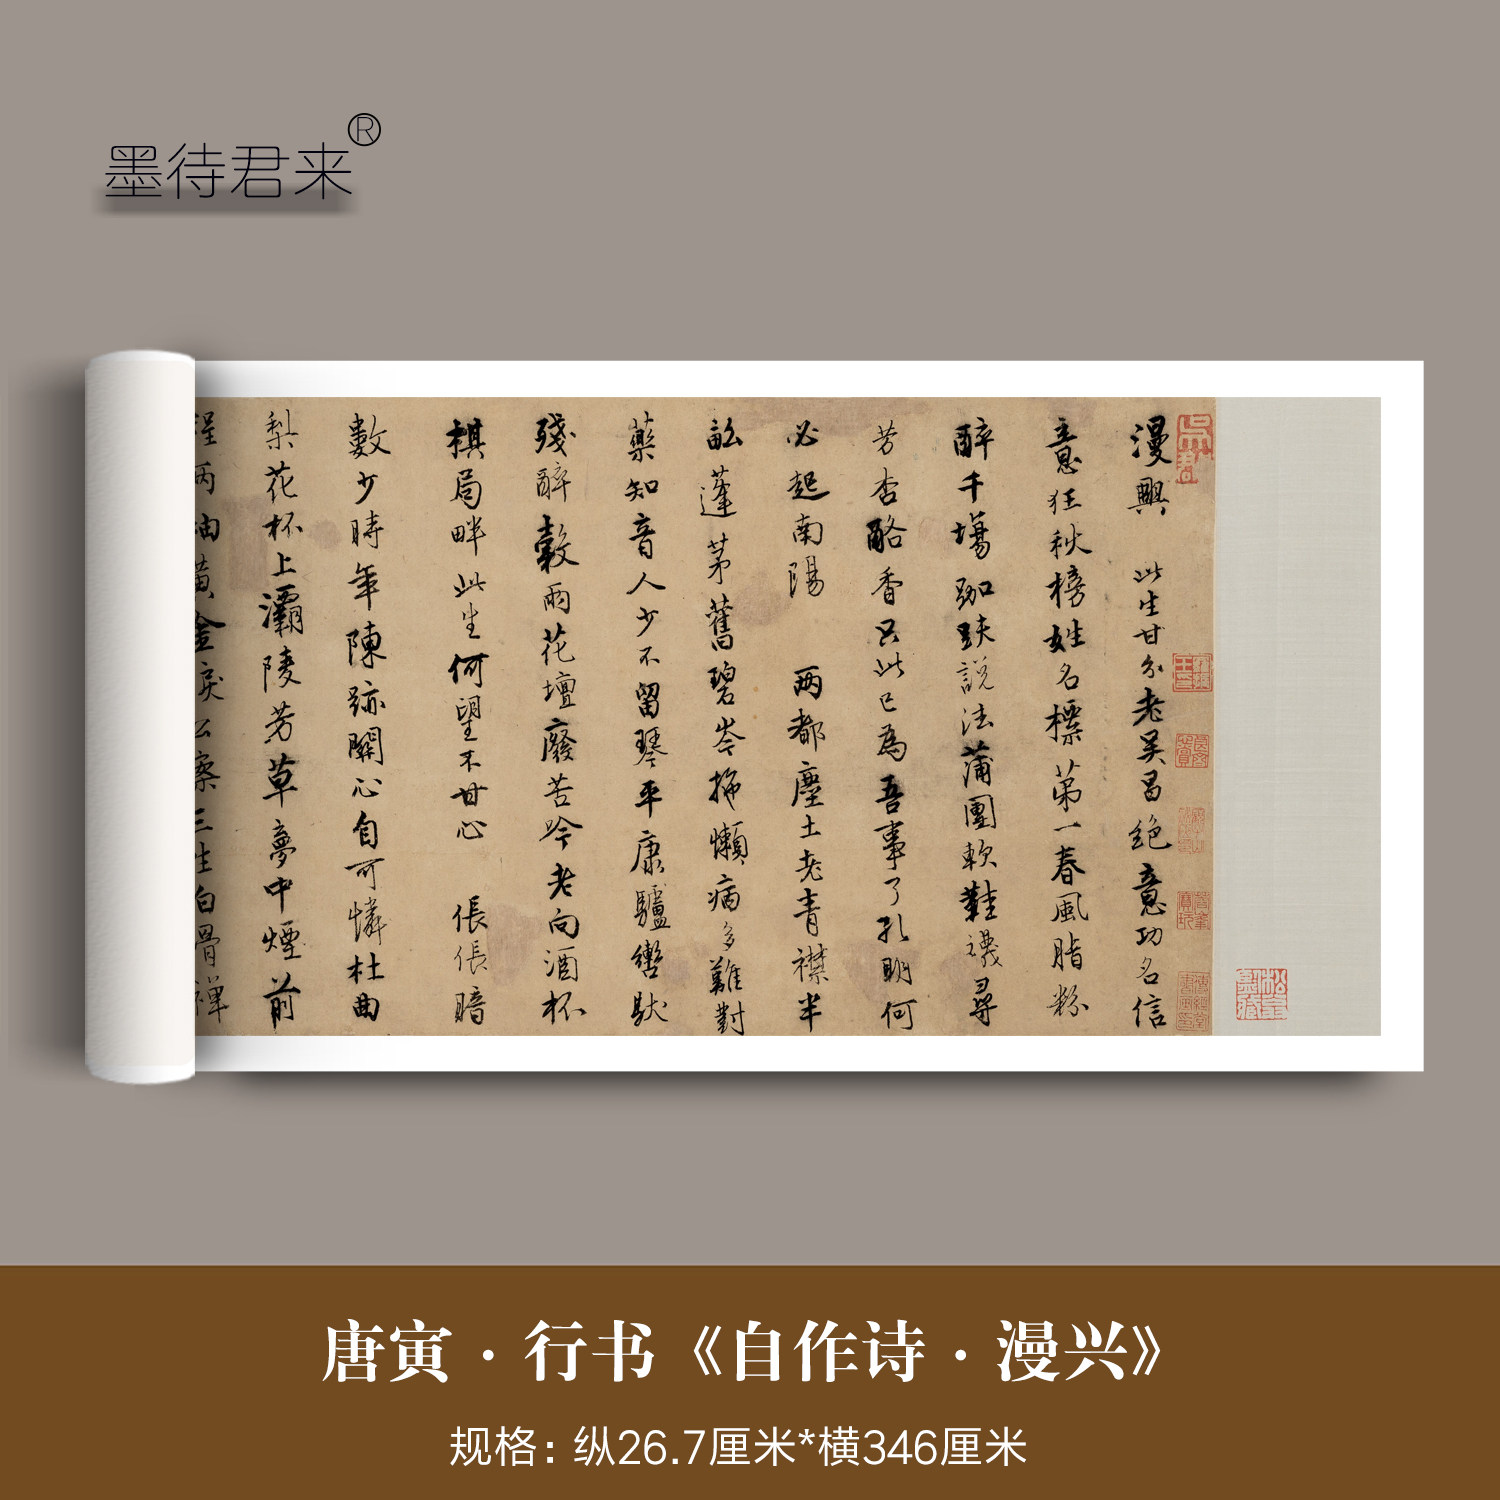 墨待君来®
漫興 此生甘分老吴昌絶意功名信
意狂秋榜姓名標第一春風脂粉
醉千塲跏趺説法蒲團軟鞋襪尋
芳杏酪香只此已為吾事了孔明何
必起南陽 两都塵土老青襟半
畝蓬茅舊碧岑拖懶病多難對
藥知音人少不留琴平康驢轡馱
殘醉穀雨花壇廢苦吟老向酒杯
棋局畔此生何望不甘心 倀倀暗
數少時年陳跡關心自可憐杜曲
梨花杯上灞陵芳草夢中煙前
程两袖黄金淚公案三生白骨禪
唐寅·行书《自作诗·漫兴》
规格：纵26.7厘米*横346厘米